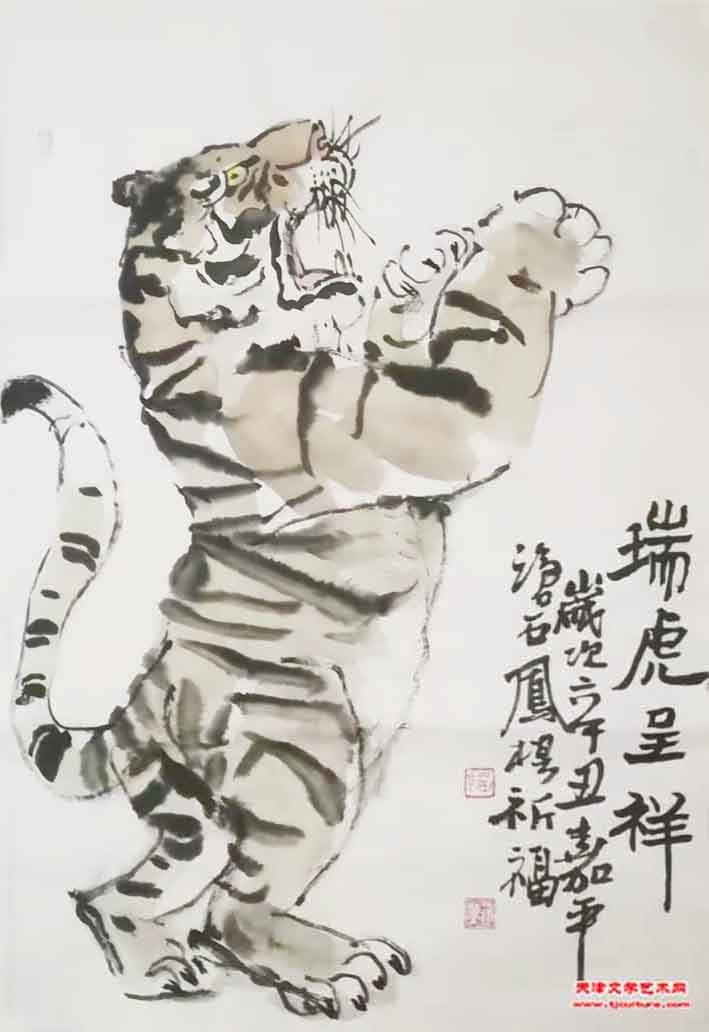 瑞虎呈祥
歲次辛丑嘉平
石鳳祈福
天津文学艺术网
www.tjculture.com